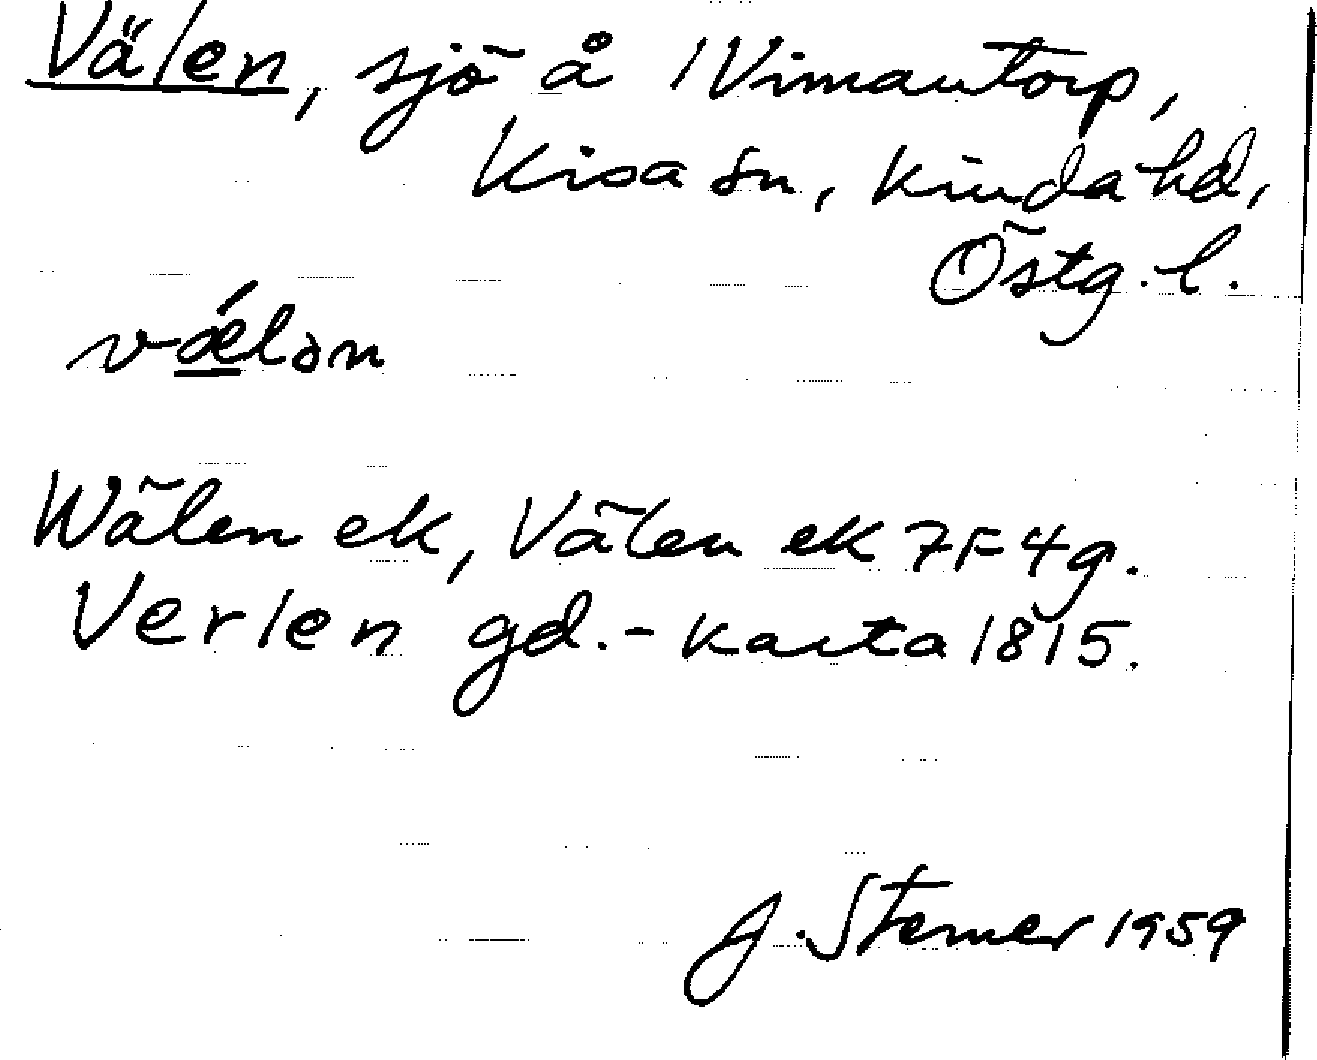 Välen, sjö å Vimantorp,
Kisa sn, Kinda hd,
Östg. l.
vǽlən
Wälen ek, Välen ek 7F4g.
Verlen gd.- karta 1815.
J. Sterner 1959